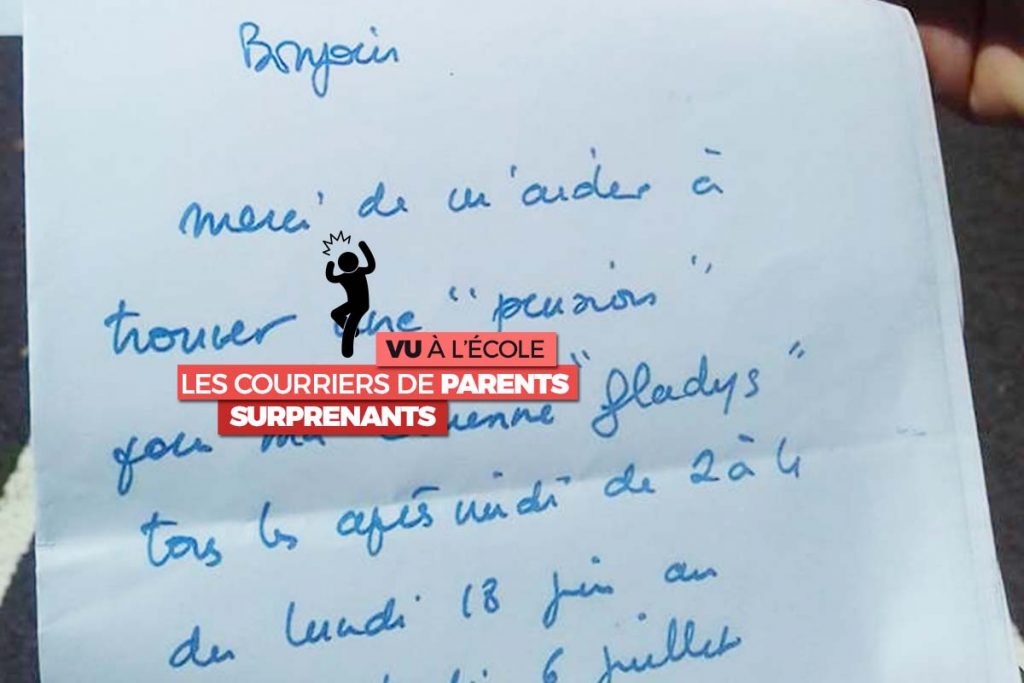 Bonjour
merci de m'aider à
trouver une "pension"
VU À L'ÉCOLE
LES COURRIERS DE PARENTS
SURPRENANTS
pour ma chienne "gladys"
tous les après midi de 2 à 4
du lundi 18 juin au
6 juillet